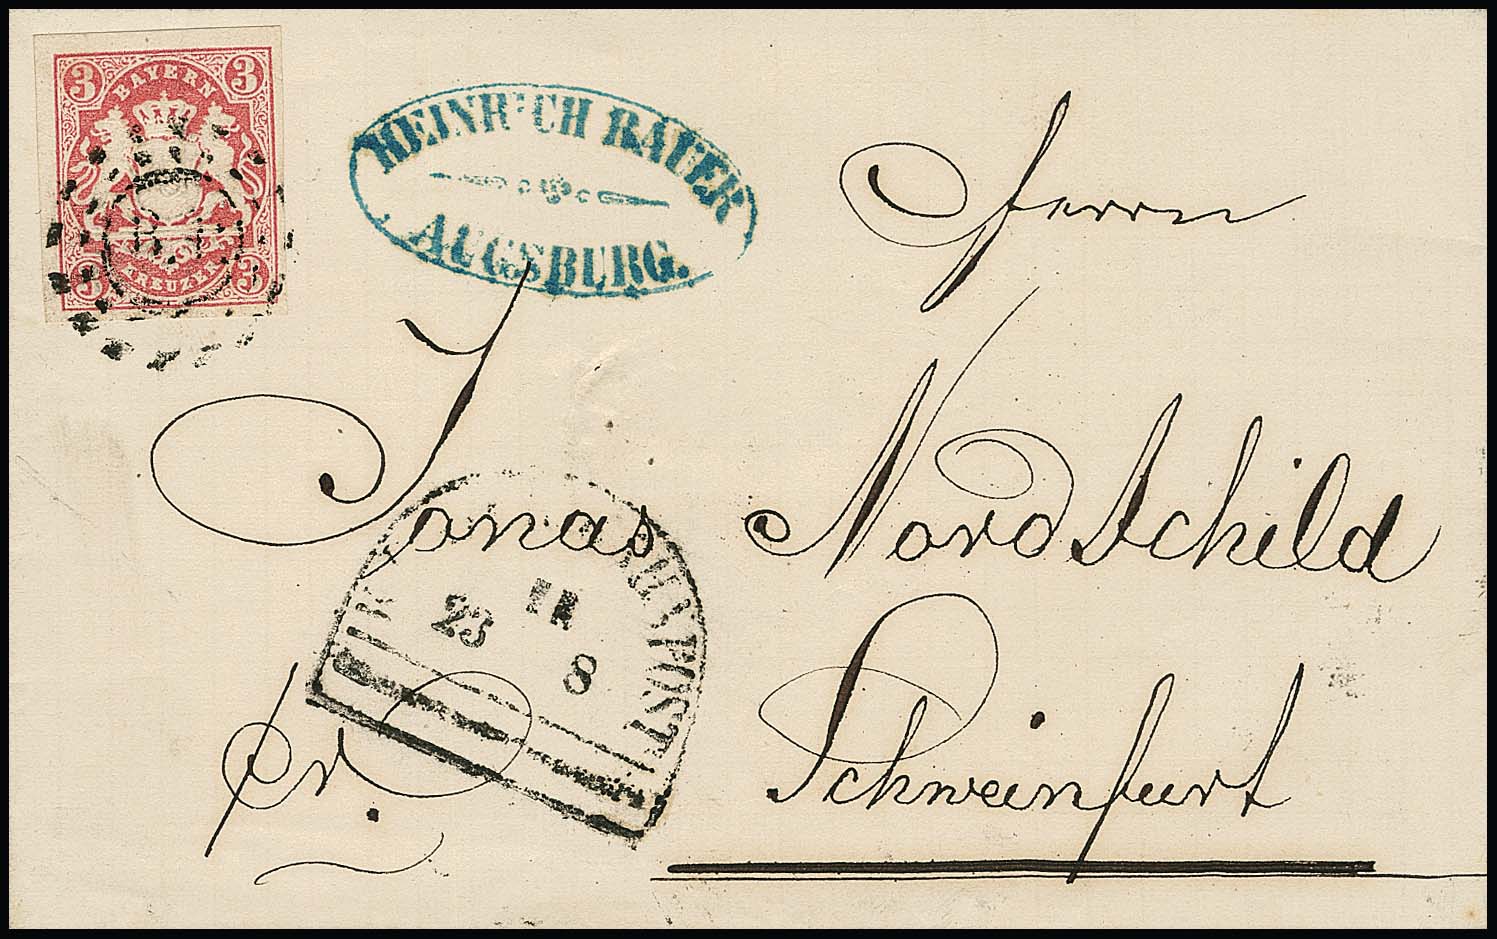 3 BAYERN 3
3 KREUZER 3
HEINRICH BAUER
AUGSBURG.
Herrn
Jonas Nordschild
pr. Schweinfurt
K. BAHNPOST
II
23 8